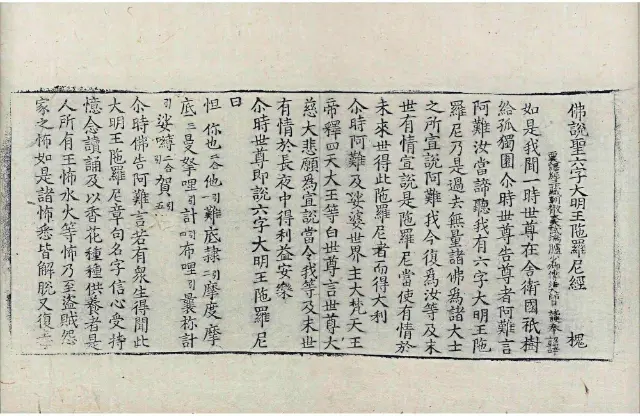 佛說聖六字大明王陁羅尼經 槐
如是我聞一時世尊在舍衛國祇樹
給孤獨園尒時世尊告尊者阿難言
阿難汝當諦聽我有六字大明王陁
羅尼乃是過去無量諸佛爲諸大士
之所宣說阿難我今復爲汝等及末
世有情宣說是陁羅尼當使有情於
未來世得此陁羅尼者而得大利
尒時阿難及娑婆世界主大梵天王
帝釋四天大王等白世尊言世尊大
慈大悲願爲宣說當令我等及末世
有情於長夜中得利益安樂
尒時世尊即說六字大明王陁羅尼
曰
怛 你也二合他一引難底隷二引摩度 摩
底三曼拏哩引計四引布哩引曩称計
引娑嚩二合引賀引五
尒時佛告阿難言若有衆生得聞此
大明王陁羅尼章句名字信心受持
憶念讀誦及以香花種種供養者是
人所有王怖水火等怖乃至盗賊怨
家之怖如是諸怖悉皆解脫又復